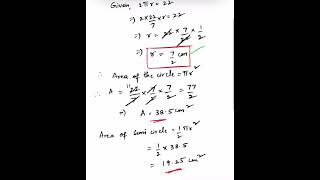 Given, 2πr = 22
⇒ 2×22/7 r = 22
⇒ r = 22 × 7/22 × 1/2
⇒ r = 7/2 cm
∴ Area of the circle = πr²
∴ A = 22/7 × 7/2 × 7/2 = 77/2
⇒ A = 38.5 cm²
Area of semi circle = 1/2 πr²
= 1/2 × 38.5
= 19.25 cm²